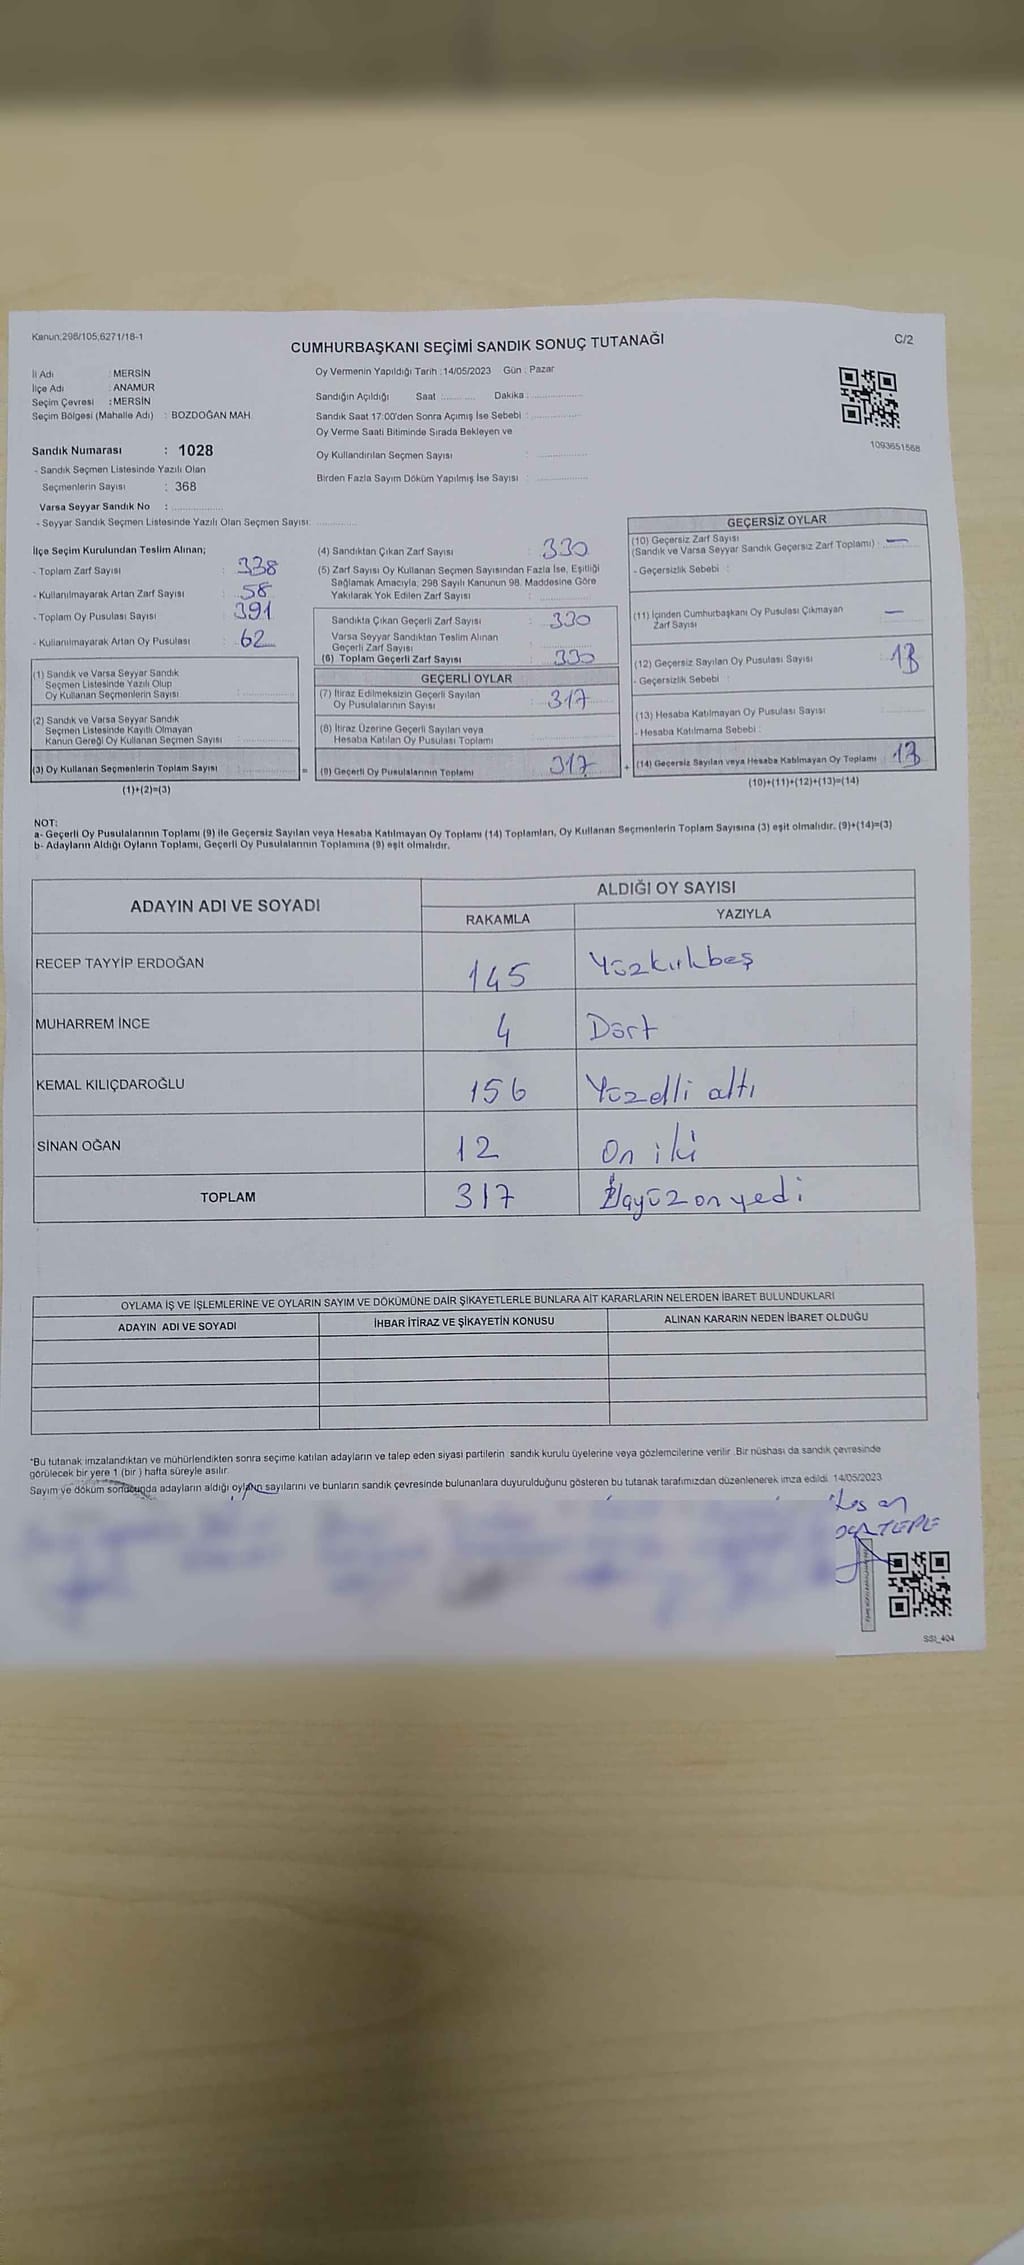 Kanun:298/105,6271/18-1
CUMHURBAŞKANI SEÇİMİ SANDIK SONUÇ TUTANAĞI
C/2
İl Adı : MERSİN
İlçe Adı : ANAMUR
Seçim Çevresi : MERSİN
Seçim Bölgesi (Mahalle Adı) : BOZDOĞAN MAH.
Oy Vermenin Yapıldığı Tarih :14/05/2023 Gün : Pazar
Sandığın Açıldığı Saat ............ Dakika : ................
Sandık Saat 17:00'den Sonra Açımış İse Sebebi : ................
Oy Verme Saati Bitiminde Sırada Bekleyen ve
Oy Kullandırılan Seçmen Sayısı : ................
Birden Fazla Sayım Döküm Yapılmış İse Sayısı : ................
1093651568
Sandık Numarası : 1028
- Sandık Seçmen Listesinde Yazılı Olan
Seçmenlerin Sayısı : 368
Varsa Seyyar Sandık No : ................
- Seyyar Sandık Seçmen Listesinde Yazılı Olan Seçmen Sayısı: ............
İlçe Seçim Kurulundan Teslim Alınan;
- Toplam Zarf Sayısı : 338
- Kullanılmayarak Artan Zarf Sayısı : 58
- Toplam Oy Pusulası Sayısı : 391
- Kullanılmayarak Artan Oy Pusulası : 62
(1) Sandık ve Varsa Seyyar Sandık
Seçmen Listesinde Yazılı Olup
Oy Kullanan Seçmenlerin Sayısı : ................
(2) Sandık ve Varsa Seyyar Sandık
Seçmen Listesinde Kayıtlı Olmayan
Kanun Gereği Oy Kullanan Seçmen Sayısı : ................
(3) Oy Kullanan Seçmenlerin Toplam Sayısı : ................ =
(1)+(2)=(3)
(4) Sandıktan Çıkan Zarf Sayısı : 330
(5) Zarf Sayısı Oy Kullanan Seçmen Sayısından Fazla İse, Eşitliği
Sağlamak Amacıyla; 298 Sayılı Kanunun 98. Maddesine Göre
Yakılarak Yok Edilen Zarf Sayısı : ................
Sandıkta Çıkan Geçerli Zarf Sayısı : 330
Varsa Seyyar Sandıktan Teslim Alınan
Geçerli Zarf Sayısı : ................
(6) Toplam Geçerli Zarf Sayısı : 330
GEÇERLİ OYLAR
(7) İtiraz Edilmeksizin Geçerli Sayılan
Oy Pusulalarının Sayısı : 317
(8) İtiraz Üzerine Geçerli Sayılan veya
Hesaba Katılan Oy Pusulası Toplamı : ................
(9) Geçerli Oy Pusulalarının Toplamı : 317 +
GEÇERSİZ OYLAR
(10) Geçersiz Zarf Sayısı
(Sandık ve Varsa Seyyar Sandık Geçersiz Zarf Toplamı) : —
- Geçersizlik Sebebi :
(11) İçinden Cumhurbaşkanı Oy Pusulası Çıkmayan
Zarf Sayısı : —
(12) Geçersiz Sayılan Oy Pusulası Sayısı : 13
- Geçersizlik Sebebi :
(13) Hesaba Katılmayan Oy Pusulası Sayısı : ................
- Hesaba Katılmama Sebebi :
(14) Geçersiz Sayılan veya Hesaba Katılmayan Oy Toplamı : 13
(10)+(11)+(12)+(13)=(14)
NOT:
a- Geçerli Oy Pusulalarının Toplamı (9) ile Geçersiz Sayılan veya Hesaba Katılmayan Oy Toplamı (14) Toplamları, Oy Kullanan Seçmenlerin Toplam Sayısına (3) eşit olmalıdır. (9)+(14)=(3)
b- Adayların Aldığı Oyların Toplamı, Geçerli Oy Pusulalarının Toplamına (9) eşit olmalıdır.
ADAYIN ADI VE SOYADI
ALDIĞI OY SAYISI
RAKAMLA YAZIYLA
RECEP TAYYİP ERDOĞAN 145 Yüzkırkbeş
MUHARREM İNCE 4 Dört
KEMAL KILIÇDAROĞLU 156 Yüzelli altı
SİNAN OĞAN 12 On iki
TOPLAM 317 üçyüz on yedi
OYLAMA İŞ VE İŞLEMLERİNE VE OYLARIN SAYIM VE DÖKÜMÜNE DAİR ŞİKAYETLERLE BUNLARA AİT KARARLARIN NELERDEN İBARET BULUNDUKLARI
ADAYIN ADI VE SOYADI İHBAR İTİRAZ VE ŞİKAYETİN KONUSU ALINAN KARARIN NEDEN İBARET OLDUĞU
*Bu tutanak imzalandıktan ve mühürlendikten sonra seçime katılan adayların ve talep eden siyasi partilerin sandık kurulu üyelerine veya gözlemcilerine verilir .Bir nüshası da sandık çevresinde
görülecek bir yere 1 (bir ) hafta süreyle asılır.
Sayım ve döküm sonucunda adayların aldığı oyların sayılarını ve bunların sandık çevresinde bulunanlara duyurulduğunu gösteren bu tutanak tarafımızdan düzenlenerek imza edildi. 14/05/2023
SSI_404